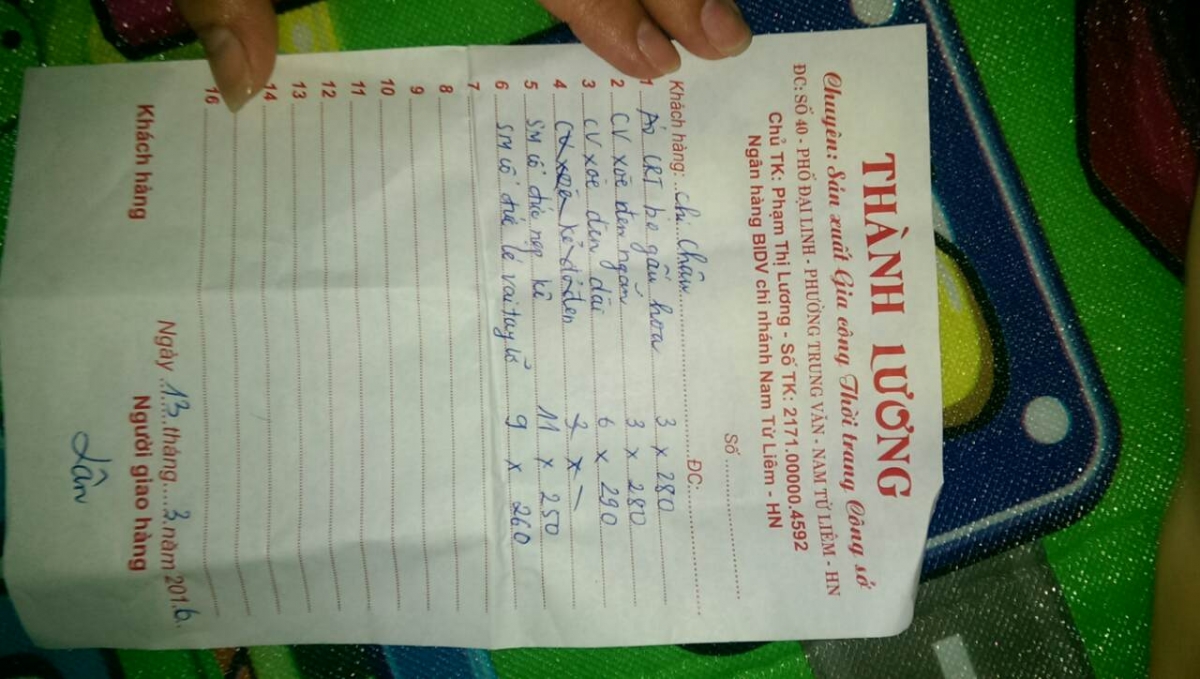 THÀNH LƯƠNG
Chuyên: Sản xuất Gia công Thời trang Công sở
ĐC: SỐ 40 - PHỐ ĐẠI LINH - PHƯỜNG TRUNG VĂN - NAM TỪ LIÊM - HN
Chủ TK: Phạm Thị Lương - Số TK: 2171.00000.4592
Ngân hàng BIDV chi nhánh Nam Từ Liêm - HN
Số
Khách hàng: Chị Châu ĐC:
1 Áo CRT be gấu hoa 3 x 280
2 CV xòe đen ngắn 3 x 280
3 CV xòe đen dài 6 x 290
4 CV xòe kẻ đỏ đen 7 x -
5 SM cổ đức nẹp kẻ 11 x 250
6 SM cổ đức lé vai tay 9 x 260
7
8
9
10
11
12
13
14
16
Ngày 13 tháng 3 năm 2016
Khách hàng Người giao hàng
Lân